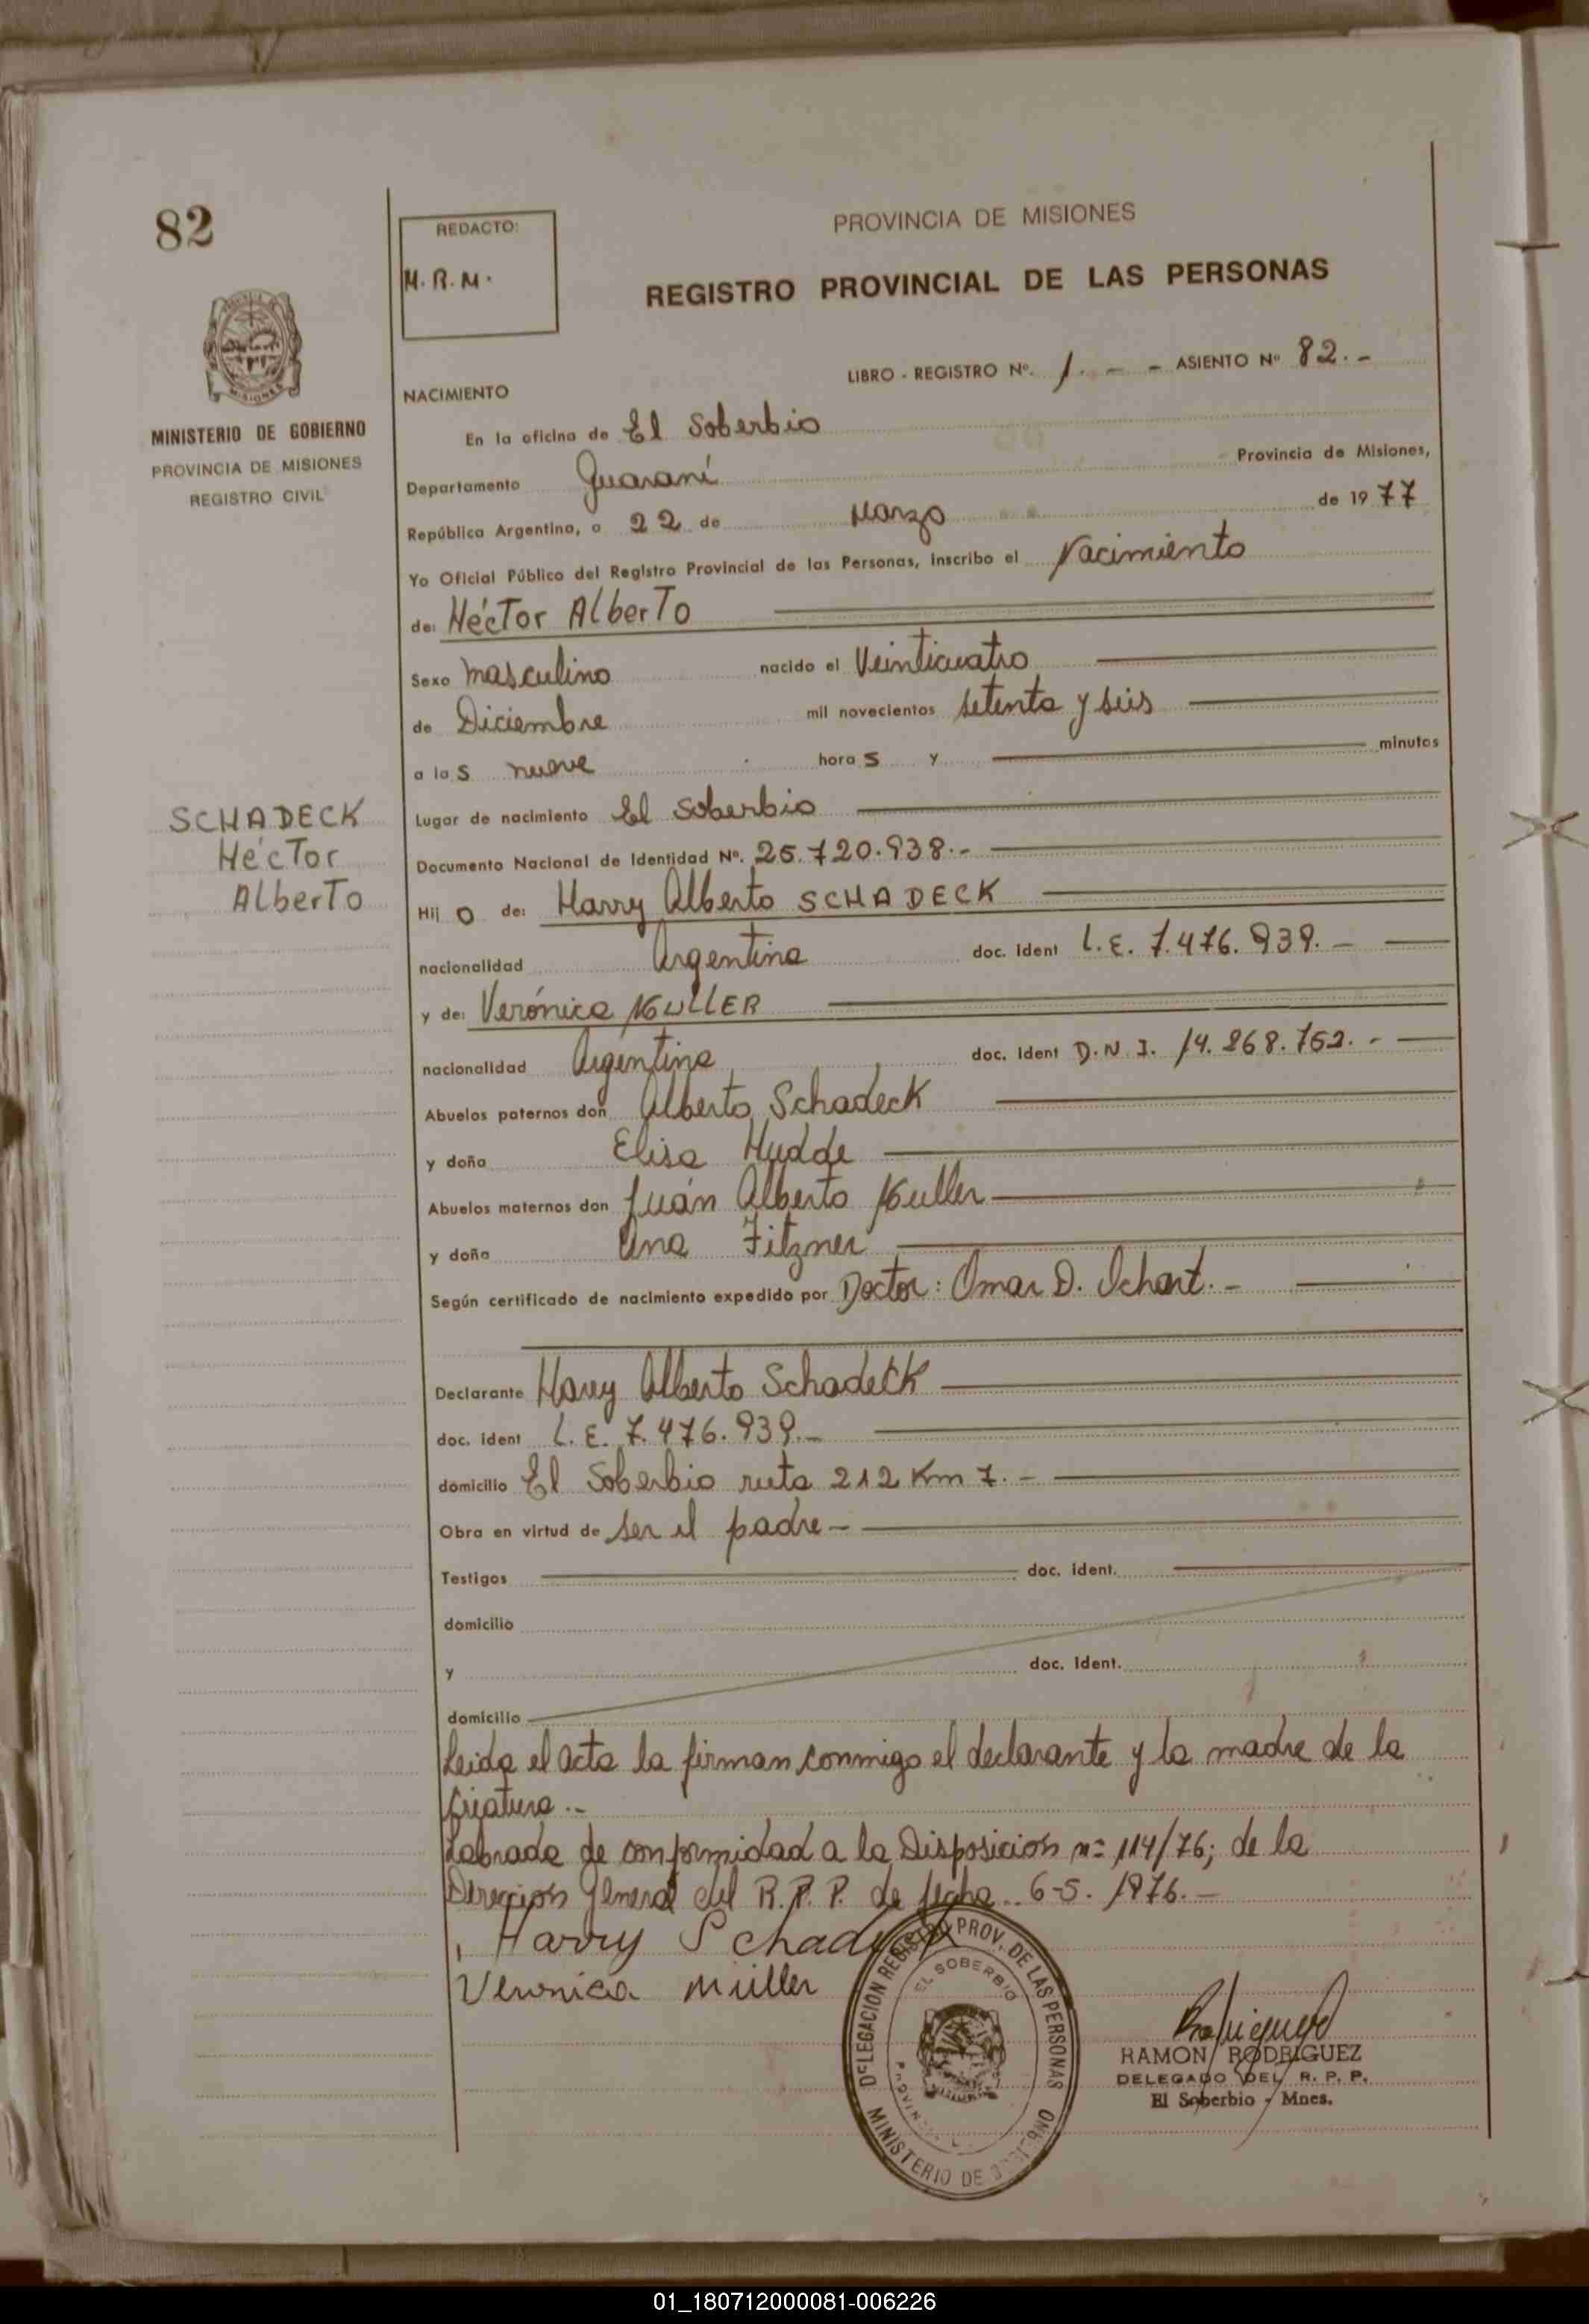 82
REDACTO:
M. R. M.
PROVINCIA DE MISIONES
REGISTRO PROVINCIAL DE LAS PERSONAS
MISIONES
MINISTERIO DE GOBIERNO
PROVINCIA DE MISIONES
REGISTRO CIVIL
LIBRO - REGISTRO Nº. 1. - - ASIENTO Nº 82. -
NACIMIENTO
En la oficina de El Soberbio
Departamento Guaraní Provincia de Misiones,
República Argentina, a 22 de Marzo de 1977
Yo Oficial Público del Registro Provincial de las Personas, inscribo el Nacimiento
de: Héctor Alberto
Sexo masculino nacido el Veinticuatro
de Diciembre mil novecientos setenta y seis
a las nueve horas y minutos
Lugar de nacimiento El Soberbio
SCHADECK
Héctor
Alberto
Documento Nacional de Identidad Nº. 25.720.938.-
Hijo de: Harry Alberto SCHADECK
nacionalidad Argentina doc. ident L.E. 7.476.939. -
y de: Verónica MULLER
nacionalidad Argentina doc. ident D.N.I. 14.268.752. -
Abuelos paternos don Alberto Schadeck
y doña Elisa Hudde
Abuelos maternos don Juan Alberto Muller
y doña Ana Fitzner
Según certificado de nacimiento expedido por Doctor: Omar D. Ichart. -
Declarante Harry Alberto Schadeck
doc. ident L. E. 7.476.939.-
domicilio El Soberbio ruta 212 Km 7. -
Obra en virtud de ser el padre -
Testigos doc. ident.
domicilio
y doc. ident.
domicilio
Leida el acta la firman conmigo el declarante y la madre de la
criatura.-
Labrada de conformidad a la Disposicion nº 114/76; de la
Direccion General del R.P.P. de fecha 6-5. 1976. -
Harry Schadeck
Veronica Müller
DELEGACION REGISTRO PROV. DE LAS PERSONAS
EL SOBERBIO
MINISTERIO DE GOBIERNO
RAMON RODRIGUEZ
DELEGADO DEL R. P. P.
El Soberbio - Mnes.
01_180712000081-006226